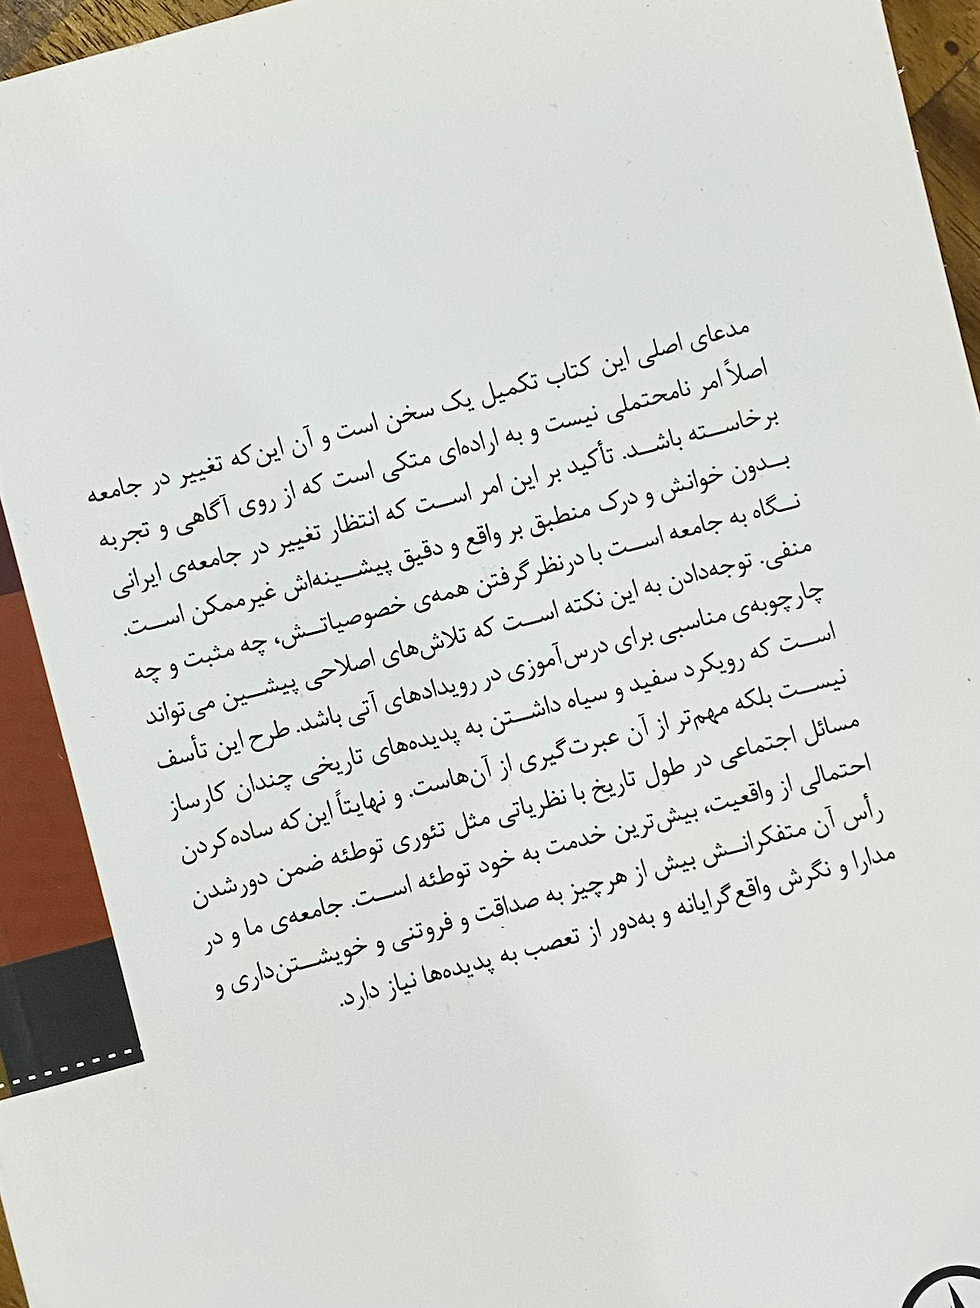 مدعای اصلی این کتاب تکمیل یک سخن است و آن این‌که تغییر در جامعه
اصلاً امر نامحتملی نیست و به اراده‌ای متکی است که از روی آگاهی و تجربه
برخاسته باشد. تأکید بر این امر است که انتظار تغییر در جامعه‌ی ایرانی
بدون خوانش و درک منطبق بر واقع و دقیق پیشینه‌اش غیرممکن است.
نگاه به جامعه است با درنظرگرفتن همه‌ی خصوصیاتش، چه مثبت و چه
منفی. توجه‌دادن به این نکته است که تلاش‌های اصلاحی پیشین می‌تواند
چارچوبه‌ی مناسبی برای درس‌آموزی در رویدادهای آتی باشد. طرح این تأسف
است که رویکرد سفید و سیاه داشتن به پدیده‌های تاریخی چندان کارساز
نیست بلکه مهم‌تر از آن عبرت‌گیری از آن‌هاست. و نهایتاً این‌که ساده‌کردن
مسائل اجتماعی در طول تاریخ با نظریاتی مثل تئوری توطئه ضمن دورشدن
احتمالی از واقعیت، بیش‌ترین خدمت به خود توطئه است. جامعه‌ی ما و در
رأس آن متفکرانش بیش از هرچیز به صداقت و فروتنی و خویشتن‌داری و
مدارا و نگرش واقع‌گرایانه و به‌دور از تعصب به پدیده‌ها نیاز دارد.